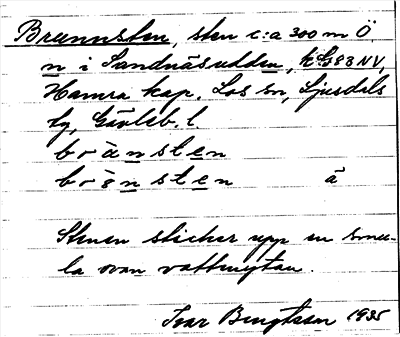 Brunnsten, sten c:a 300 m Ö.
n i Sandnäsudden, k. G 83 NV,
Hamra kap. Los sn, Ljusdals
tg, Gävleb. l.
boànsten
bo sten ä
Stenen sticker upp en smu-
la ovan vattenytan.
Ivar Bengtsson 1935